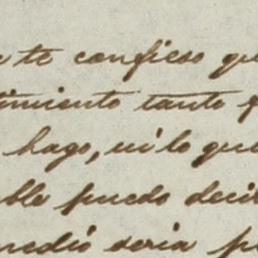 te confieso qu
imiento tanto
hago, ni lo que
ble puedo deci
medio seria p